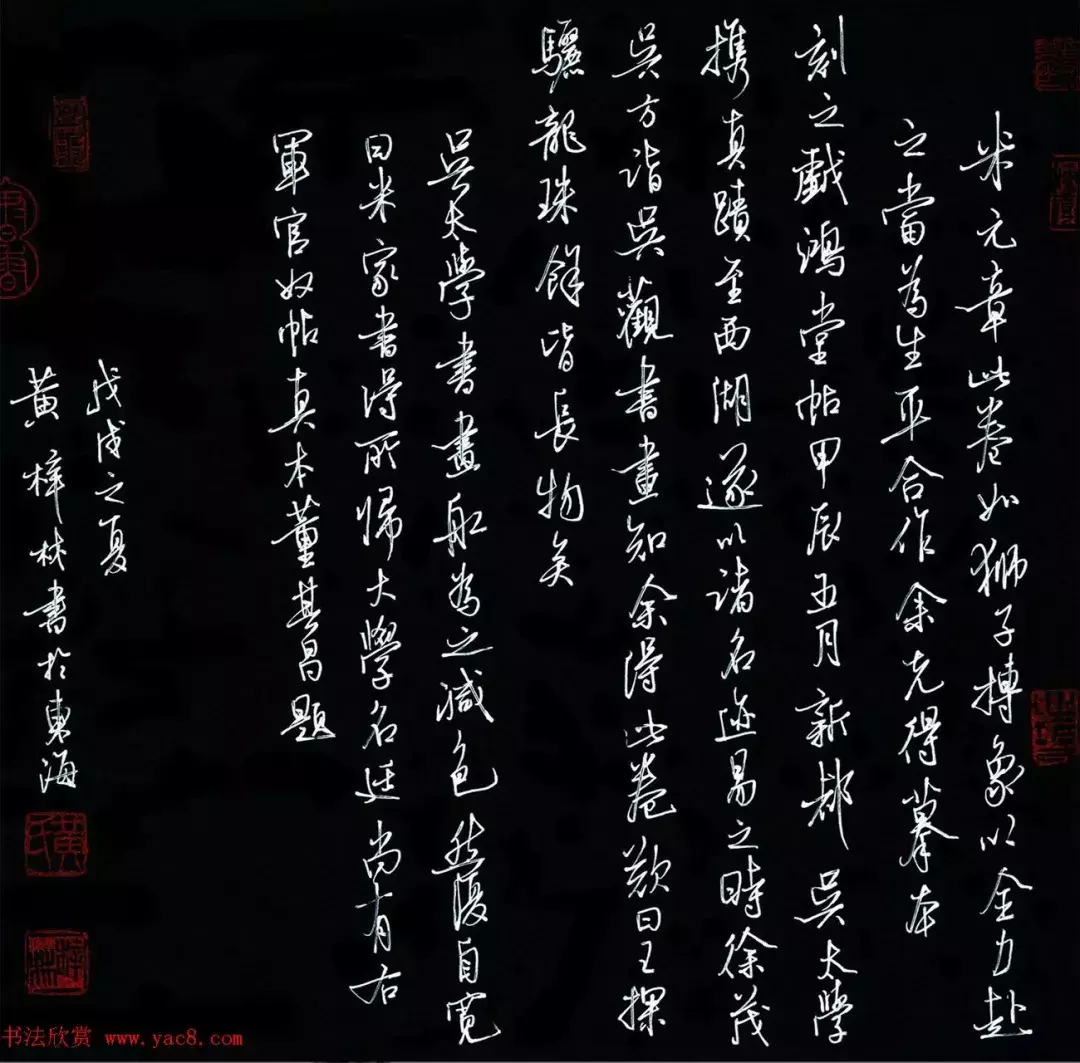 米元章此卷如狮子搏象以全力赴
之當為生平合作余先得摹本
刻之戯鴻堂帖甲辰五月新都吴太學
携真蹟至西湖遂以諸名迹易之時徐茂
吴方詣吴觀書畫知余得此卷歎曰已探
驪龍珠餘皆長物矣
吴太學書畫船為之減色然後自寛
曰米家書得所歸大學名廷尚有右
軍官奴帖真本董其昌題
戊戌之夏
黄梓林書於東海
黄氏
书法欣赏 www.yac8.com